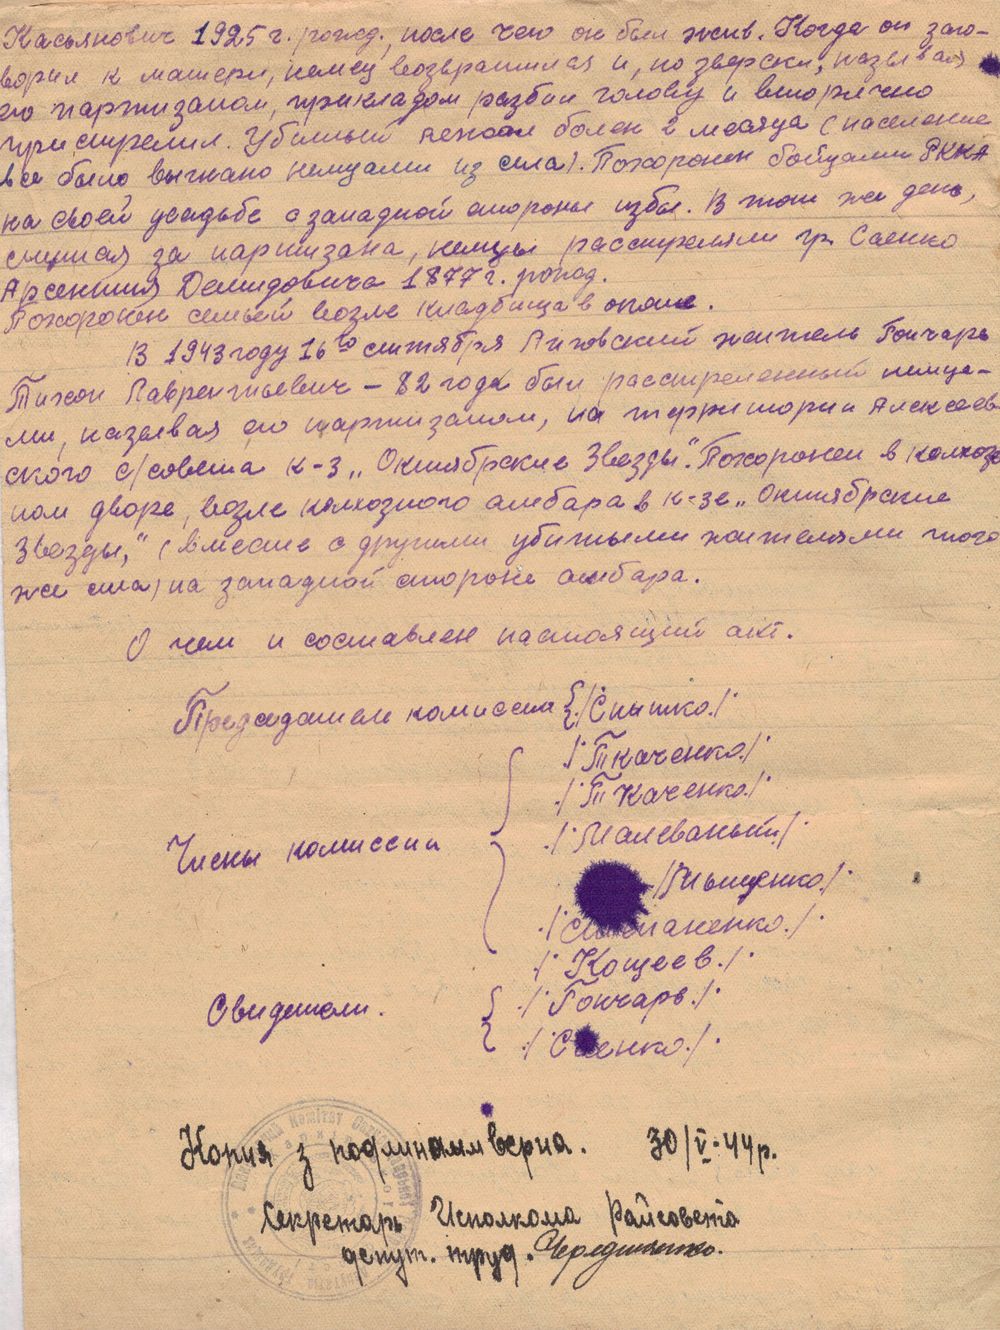 Касьянович 1925 г. рожд., после чего он был жив. Когда он заго-
ворил к матери, немец возвратился и, по зверски, называя
его партизаном, прикладом разбил голову и вторично
пристрелил. Убитый лежал более 2 месяца (население
все было выгнано немцами из села). Похоронен бойцами РККА
на своей усадьбе с западной стороны избы. В тот же день,
считая за партизана, немцы расстреляли гр. Саенко
Арсентия Демидовича 1877 г. рожд.
Похоронен семьей возле кладбища в окопе.
В 1943 году 16го сентября житель Гончарь
Тихон Лаврентьевич – 82 года был расстреленный немца-
ми, называя его партизаном, на территории Алексеев-
ского с/совета к-з „Октябрские Звезды“. Похоронен в колхоз-
ном дворе, возле колхозного амбара в к-зе „Октябрские
Звезды,“ (вместе с другими убитыми жителями того
же села) на западной стороне амбара.
О чем и составлен настоящий акт.
Председатель комиссии /Снытко/
/Ткаченко/
/Ткаченко/
Члены комиссии /Малеваный/
/Ильщенко/
/Кощеев/
Свидетели. /Гончарь/
/Саенко/
Копия з подлинным верна. 30/V-44 р.
Секретарь Исполкома Райсовета
депут. труд. Чередниченко.